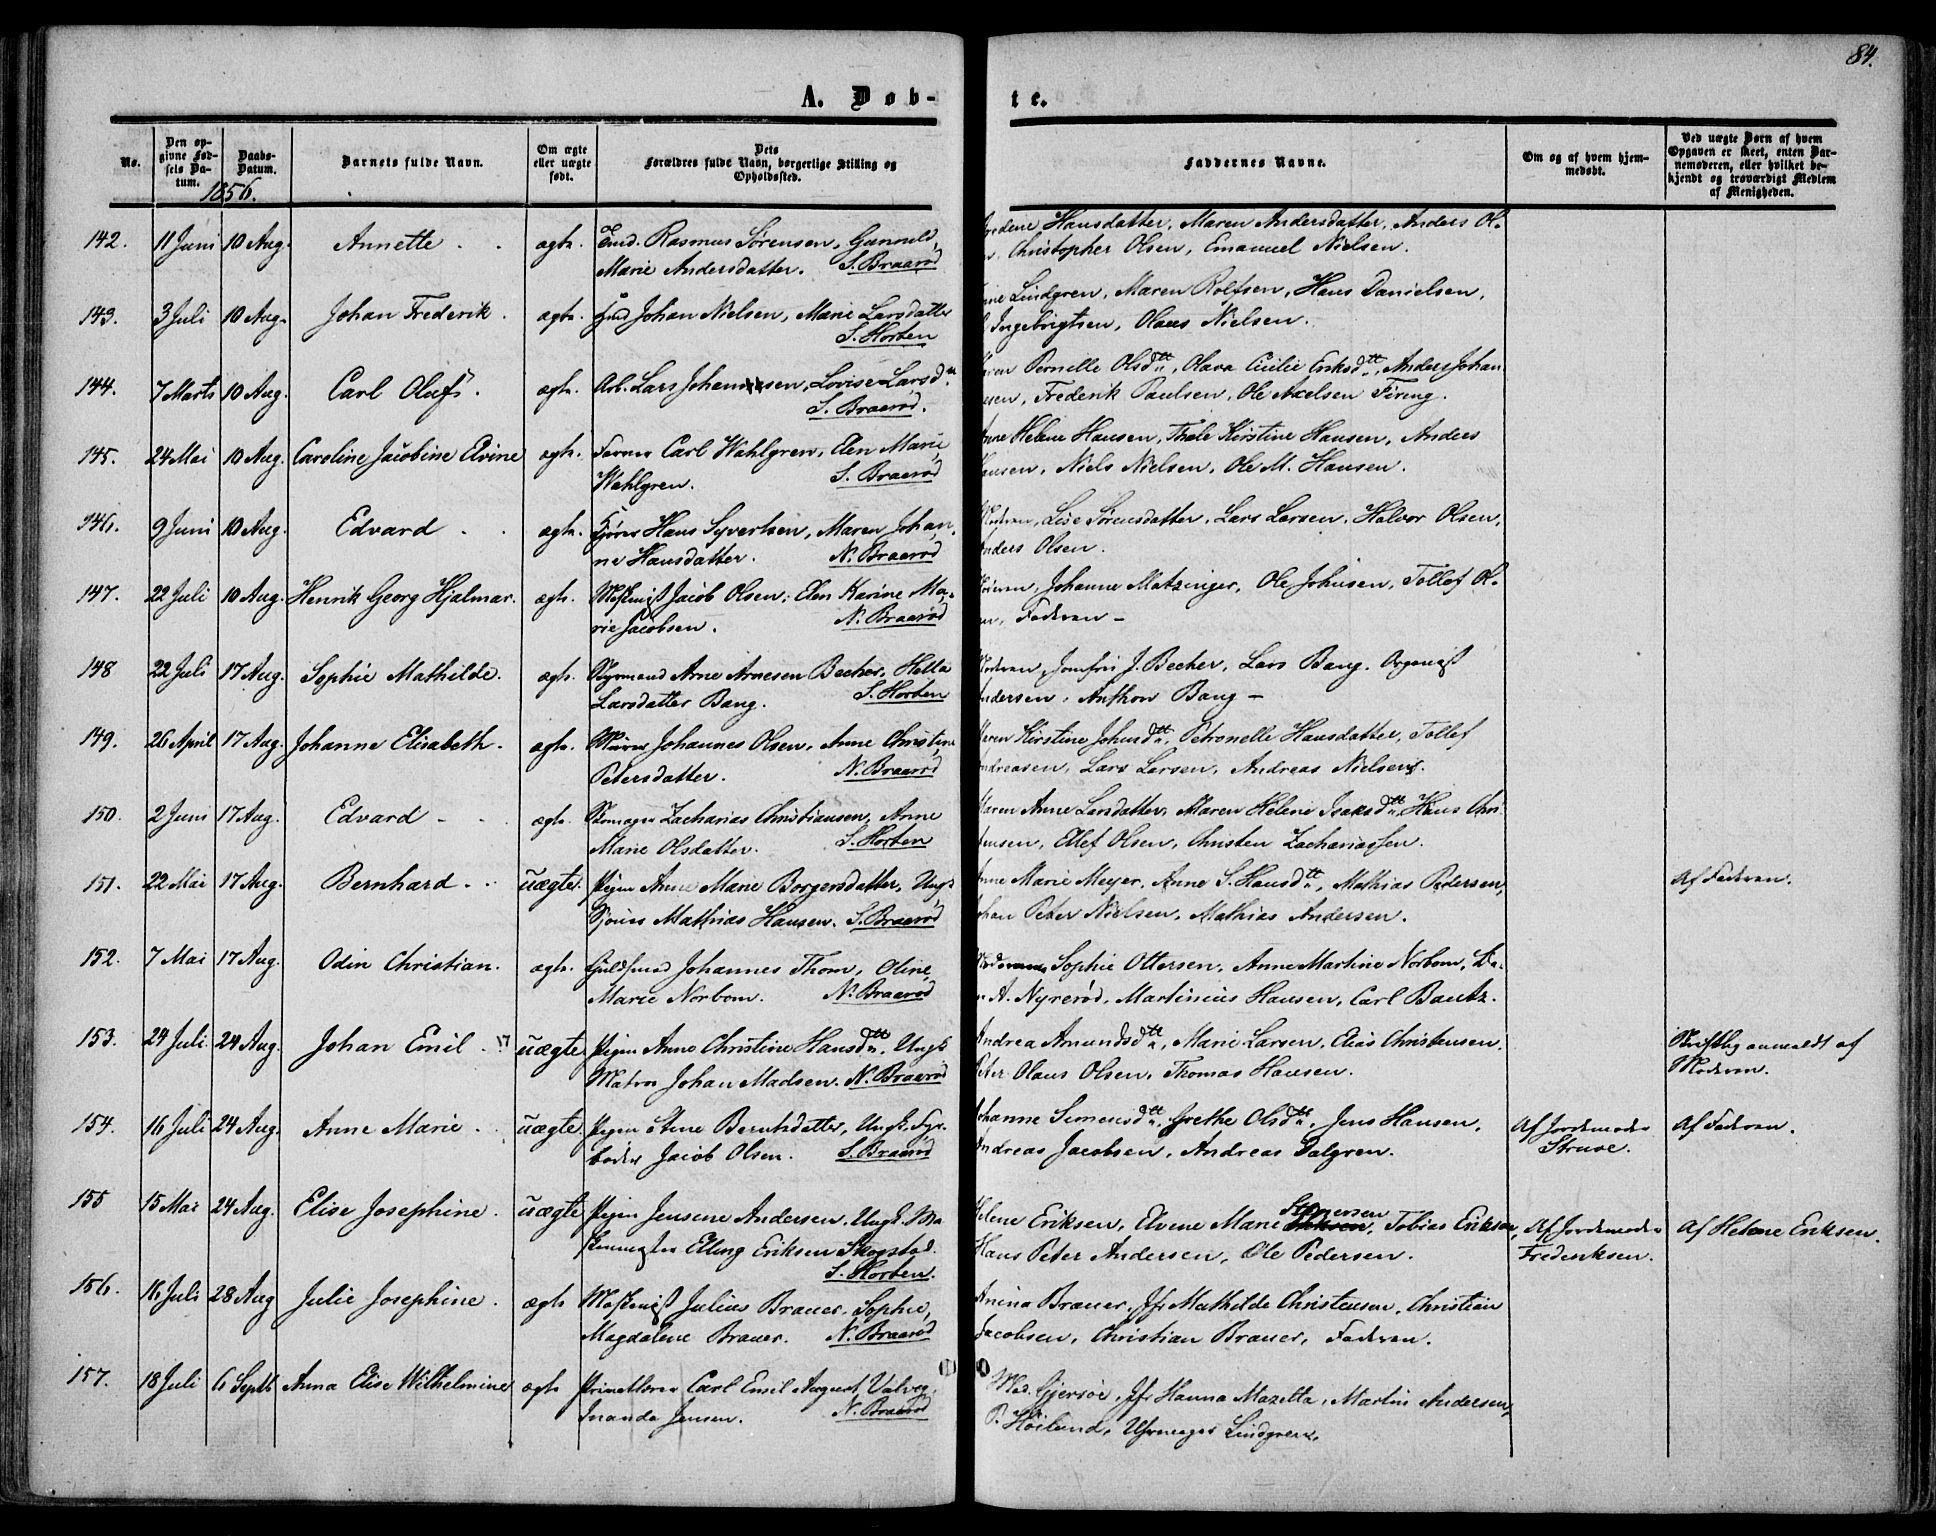 84.
A. Døb-
te.
No.
Den op-
givne Fød-
sels Da-
tum.
Daabs-
Datum.
Barnets fulde Navn.
Om ægte
eller uægte
født.
Dets
Forældres fulde Navn, borgerlige Stilling og
Opholdssted.
Faddernes Navne.
Om og af hvem hjem-
medøbt.
Ved uægte Børn af hvem
Opgaven er skeet, enten Bar-
nemoderen, eller hvilket be-
kjendt og troværdigt Medlem
af Menigheden.
1856.
142. 11 Juni 10 Aug. Annette ægte. Rasmus Sørensen, Gunnild
Marie Andersdatter. S. Braarød
Hansdatter, Maren Andersdatter, Anders Ol-
Christopher Olsen, Emanuel Nielsen.
143. 3 Juli 10 Aug. Johan Frederik. ægte. Johan Nielsen, Marie Larsdatter
S. Horten
Lindgren, Maren Rolfsen, Hans Danielsen,
Ingebrigtsen, Olaus Nielsen.
144. 7 Marts 10 Aug. Carl Oluf. ægte. Arb. Lars Johannesen, Lovise Larsd.
S. Braarød.
Pernelle Olsdtt, Olava Cicilie Eriksdtt, Anders Johan
sen, Frederik Paulsen, Ole Axelsen Firing.
145. 24 Mai 10 Aug. Caroline Jacobine Elvine ægte. Farver Carl Wahlgren, Elen Marie
Wahlgren. S. Braarød
Helene Hansen, Thale Kirstine Hansen, Anders
Hansen, Niels Nielsen, Ole M. Hansen.
146. 9 Juni 10 Aug. Edvard ægte. Hans Syvertsen, Maren Johan-
ne Hansdatter. N. Braarød
Lise Sørensdatter, Lars Larsen, Halvor Olsen,
Anders Olsen.
147. 22 Juli 10 Aug. Henrik Georg Hjalmar. ægte. Maskinist Jacob Olsen, Elen Karine Ma-
rie Jacobsen. N. Braarød
Johanne Matzinger, Ole Johnsen, Tollef Ol-
Faderen -
148 22 Juli 17 Aug. Sophie Mathilde. ægte. Styrmand Arne Arnesen Becher, Hella
Larsdatter Bang. S. Horten
Moderen, Jomfru J. Becher, Lars Bang. Organist
Andersen, Anthon Bang -
149. 26 April 17 Aug. Johanne Elisabeth. ægte. Murer Johannes Olsen, Anne Christine
Petersdatter. N. Braarød
Maren Kirstine Johnsdtt, Petronelle Hansdatter, Tollef
Andreasen, Lars Larsen, Andreas Nielsen.
150. 2 Juni 17 Aug. Edvard - ægte. Skomager Zacharias Christiansen, Anne
Marie Olsdatter. S. Horten
Maren Anne Larsdatter, Maren Helene Isaksdtt, Hans Chri-
stensen, Ellef Olsen, Christen Zachariassen.
151. 22 Mai 17 Aug. Bernhard. uægte. Pigen Anne Marie Borgersdatter, Ungk.
Mathias Hansen. S. Braarød
Anne Marie Meyer, Anne S. Hansdtt, Mathias Pedersen,
Johan Peter Nielsen, Mathias Andersen.
Af Faderen.
152. 7 Mai 17 Aug. Odin Christian. ægte. Guldsmed Johannes Thom, Oline
Marie Norbom. N. Braarød
Sophie Ottersen, Anne Martine Norbom,
A. Nyrerød, Martinius Hansen, Carl Bautz.
153. 24 Juli 24 Aug. Johan Emil. uægte Pigen Anne Christine Hansdtt, Ungk.
Matros Johan Madsen. N. Braarød
Andrea Amundsdtt, Marie Larsen, Elias Christensen,
Peter Olaus Olsen, Thomas Hansen.
Skriftlig anmeldt af
Moderen.
154. 16 Juli 24 Aug. Anne Marie. uægte Pigen Stine Berntsdatter, Ungk. Fyr-
bøder Jacob Olsen. S. Braarød
Johanne Simensdtt, Grethe Olsdtt, Jens Hansen,
Andreas Jacobsen, Andreas Dalgren.
Af Jordemoder
Struve.
Af Faderen.
155 15 Mai 24 Aug. Elise Josephine. uægte Pigen Jensine Andersen, Ungk. Ma
Elling Eriksen Skogstad.
S. Horten.
Helene Eriksen, Elvene Marie Stenersen, Tobias Eriksen,
Hans Peter Andersen, Ole Pedersen.
Af Jordemoder
Frederiksen.
Af Helene Eriksen.
156. 16 Juli 28 Aug Julie Josephine. ægte Maskinist Julius Brauer, Sophie
Magdalene Brauer. N. Braarød
Anina Brauer, Jfr Mathilde Christensen, Christian
Jacobsen, Christian Brauer, Faderen.
157. 18 Juli 6 Septb Anna Elise Wilhelmine ægte Carl Emil August, Valveg
Inanda Jensen. N. Braarød
Gjersøe, Jfr Hanna Mazetta, Martin Andersen,
P. Høilund, Uhrmager Lindgren.